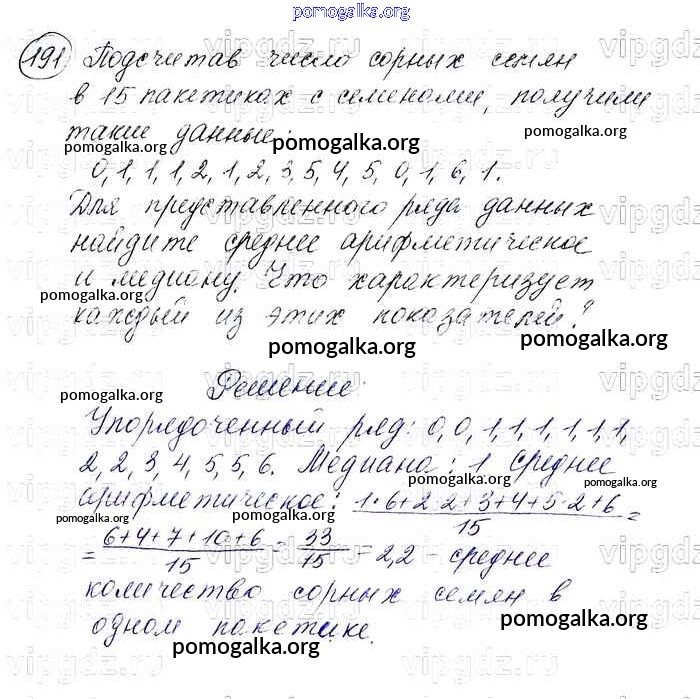 pomogalka.org
191 Подсчитав число сорных семян
в 15 пакетиках с семенами, получили
такие данные:
pomogalka.org pomogalka.org pomogalka.org
0, 1, 1, 1, 2, 1, 2, 3, 5, 4, 5, 0, 1, 6, 1.
Для представленного ряда данных
найдите среднее арифметическое
и медиану. Что характеризует
pomogalka.org
каждый из этих показателей?
pomogalka.org
Решение:
pomogalka.org pomogalka.org
Упорядоченный ряд: 0, 0, 1, 1, 1, 1, 1, 1,
2, 2, 3, 4, 5, 5, 6. Медиана: 1 Среднее
pomogalka.org pomogalka.org
арифметическое: (1·6+2·2+3+4+5·2+6)/15 =
pomogalka.org pomogalka.org
= (6+4+7+10+6)/15 = 33/15 = 2,2 - среднее
количество сорных семян в
pomogalka.org
одном пакетике.
pomogalka.org